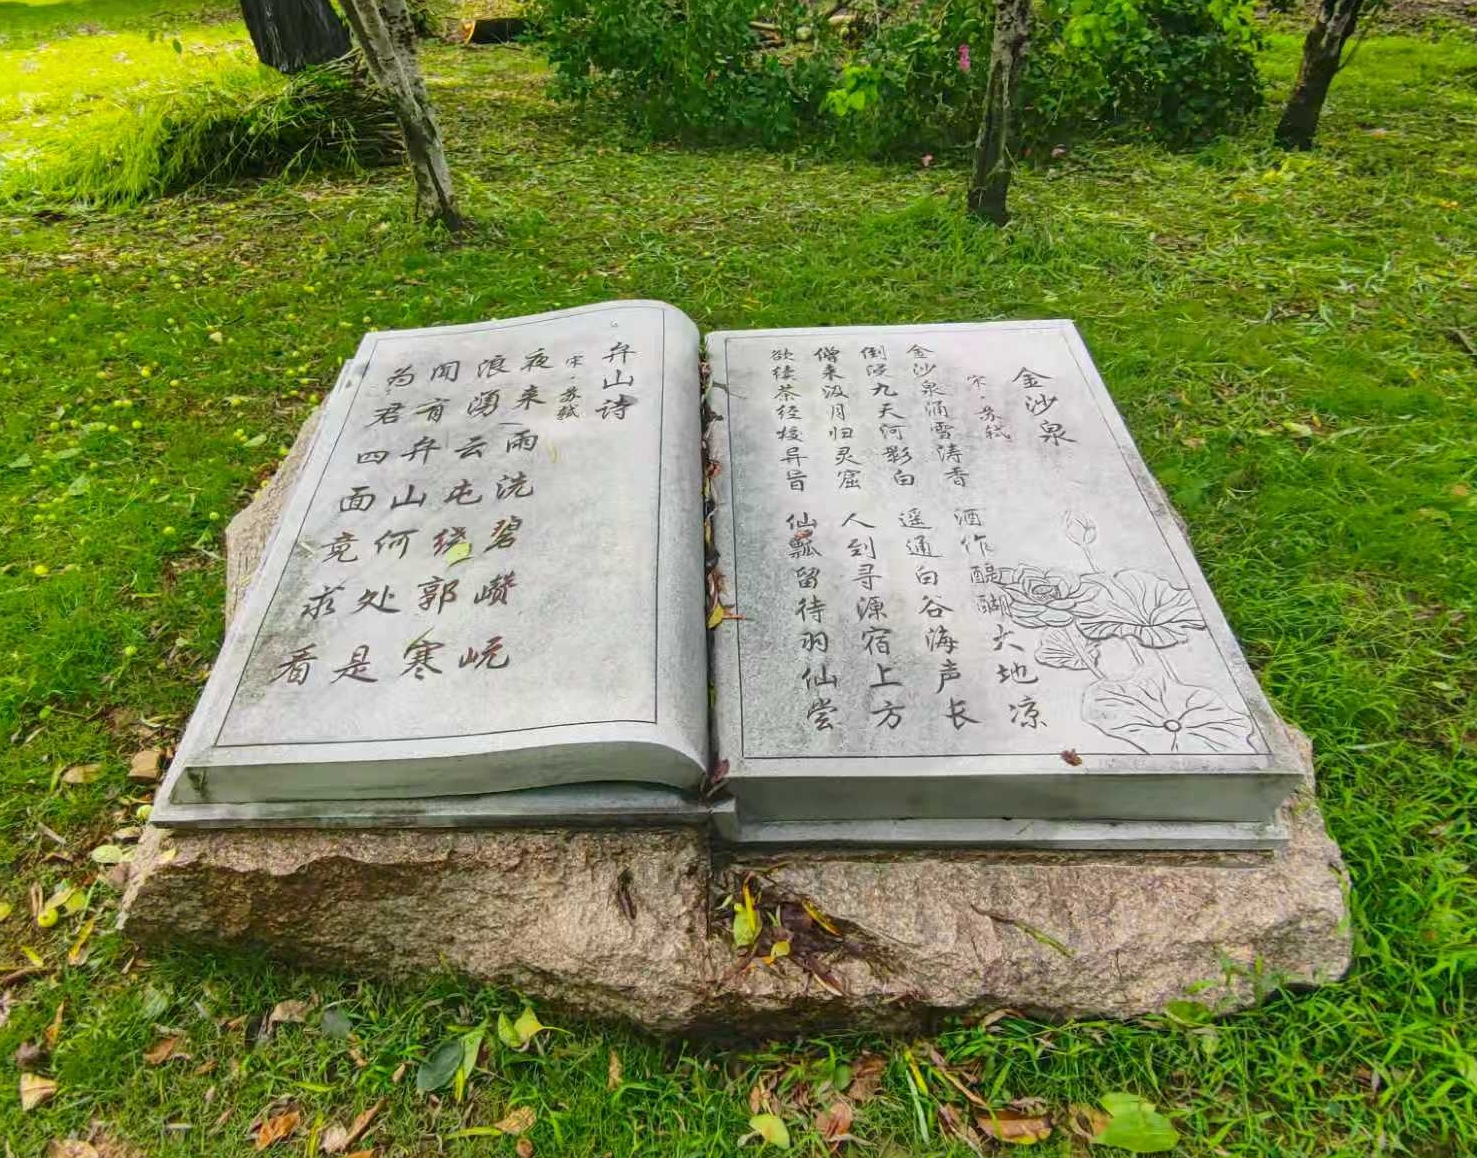 金沙泉
宋·苏轼
金沙泉涌雪涛香 酒作醍醐大地凉
倒浸九天河影白 遥通白谷海声长
僧来汲月归灵窟 人到寻源宿上方
欲续茶经校异旨 仙瓢留待羽仙尝
弁山诗
宋·苏轼
夜来雨洗碧巑岏
浪湧云屯绕郭寒
闻有弁山何处是
为君四面竟求看